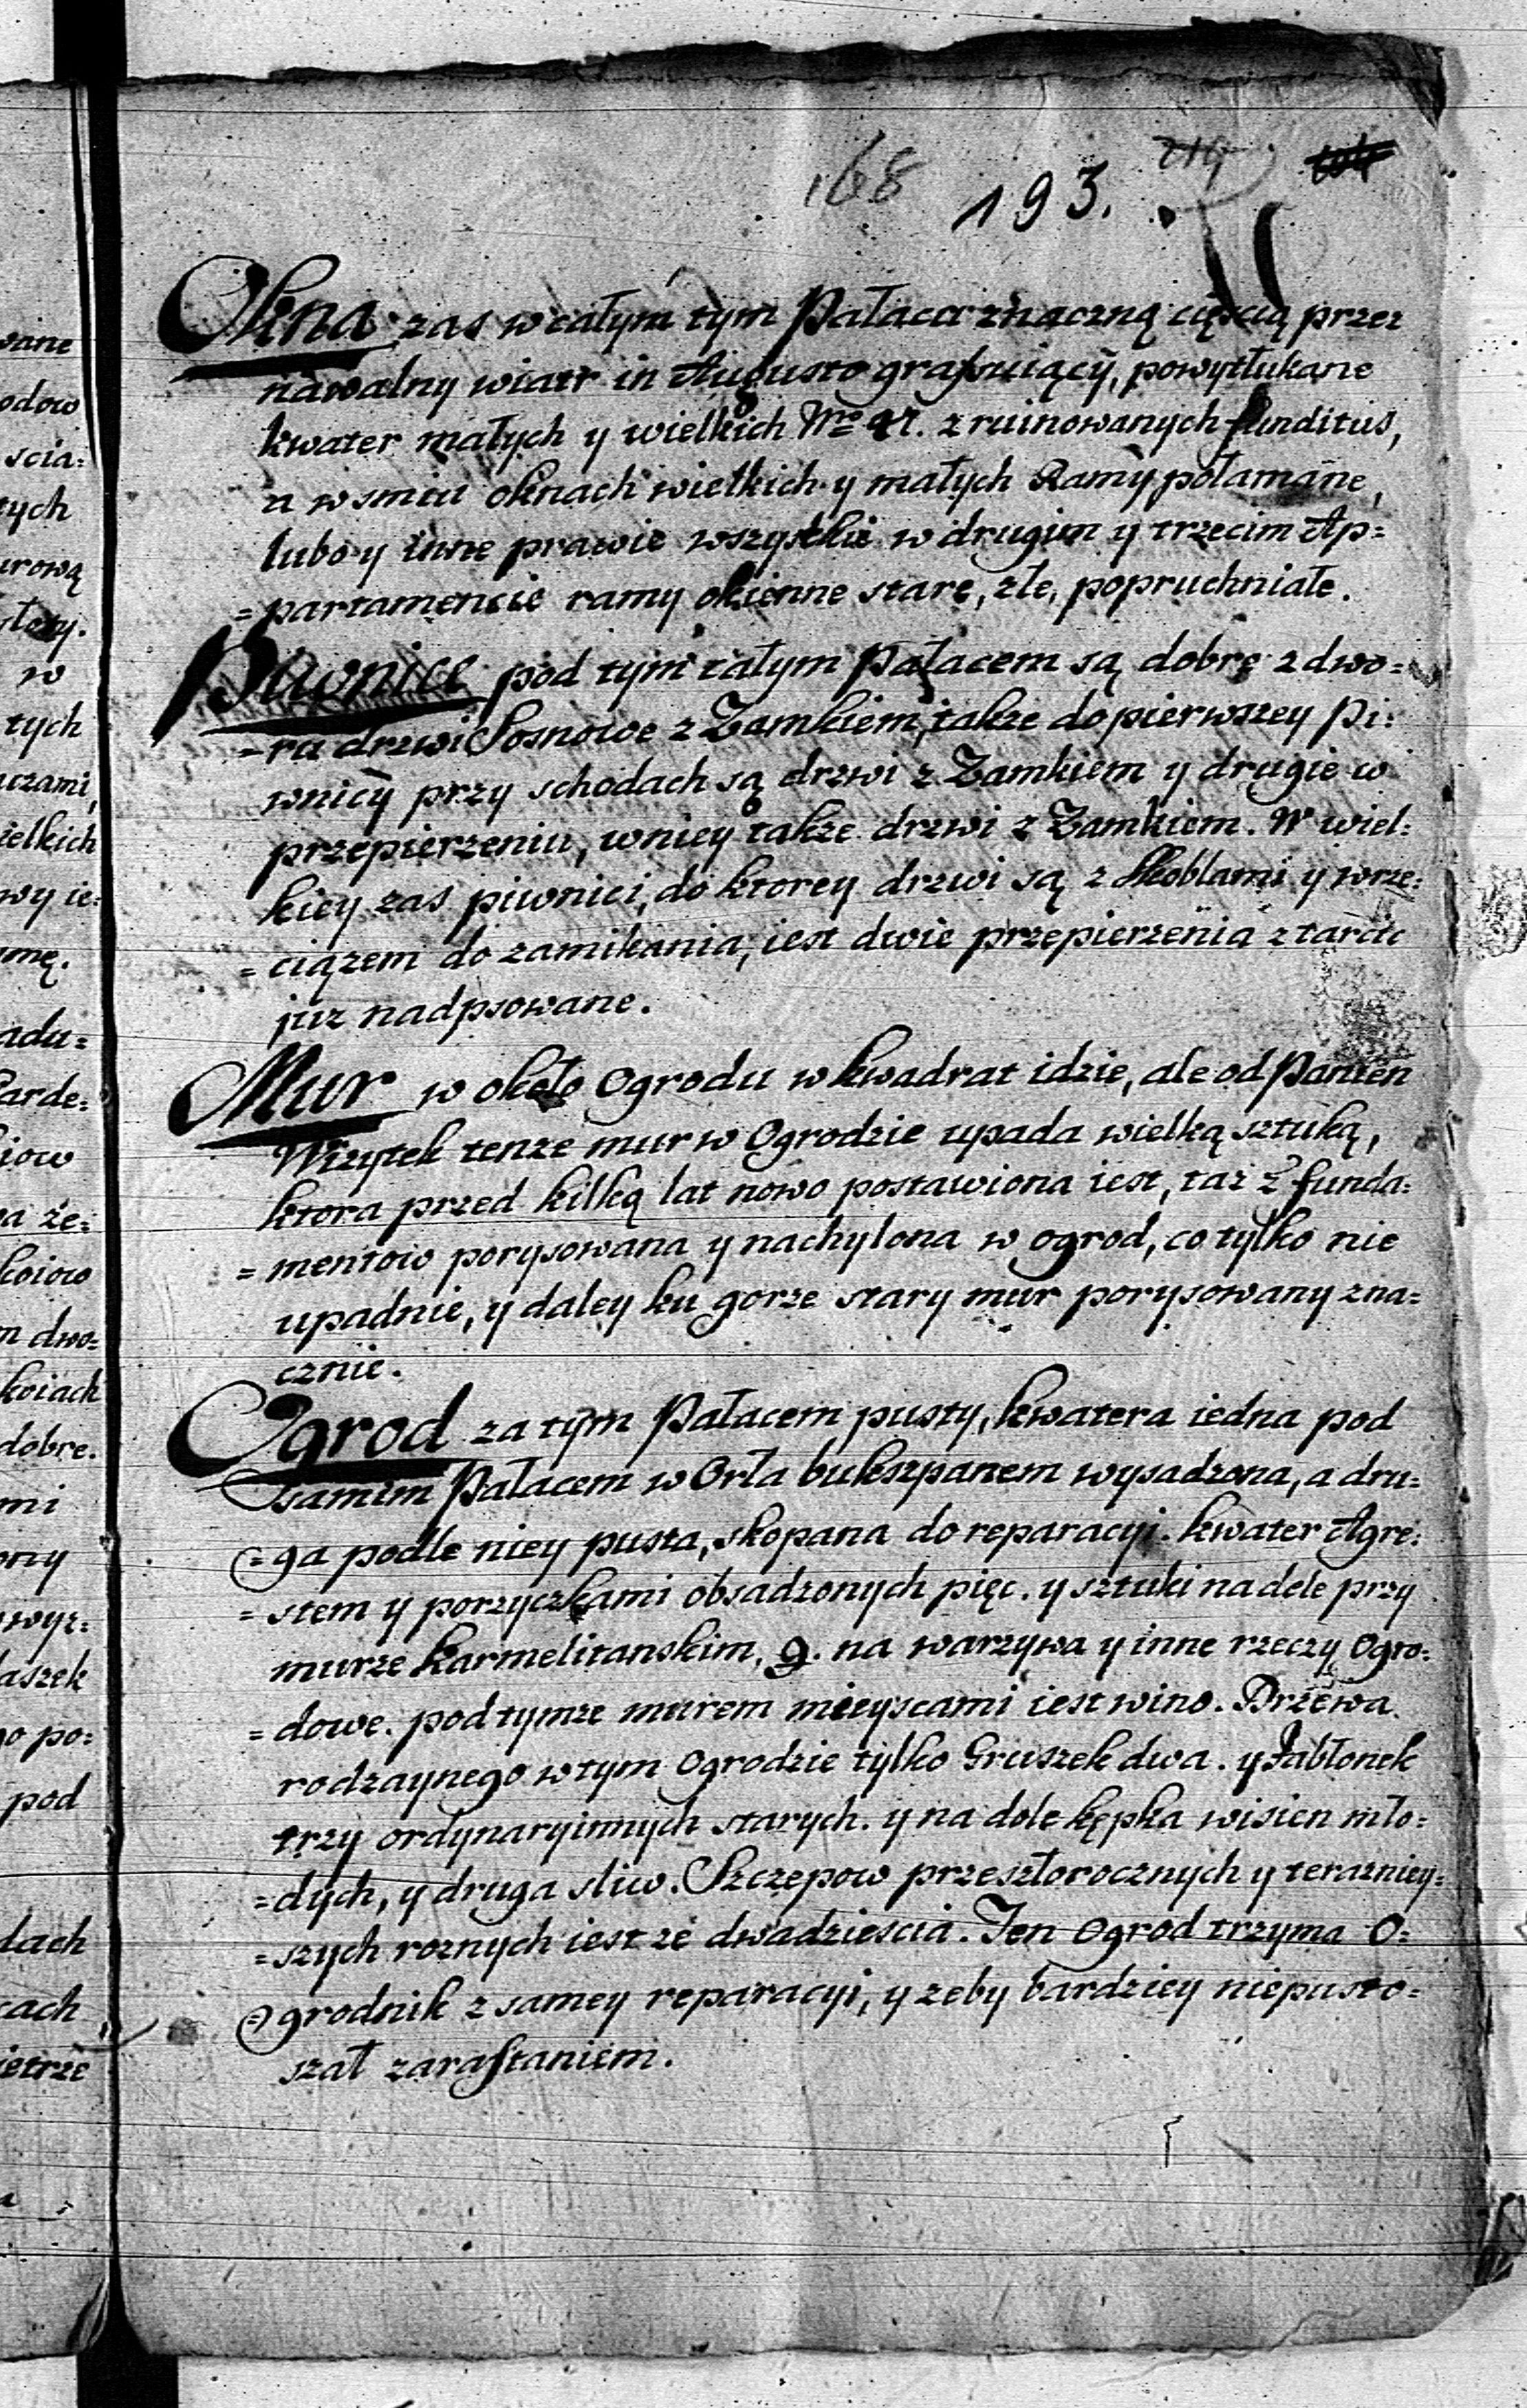 168 193. 214
Okna zas w całym tym Pałacu znaczną częscią przez
nawalny wiatr in Augusto grassuiący, powytłukane
kwater małych y wielkich Nro zruinowanych funditus,
a w smiu oknach wielkich y małych Ramy połamane,
lubo y inne prawie wszystkie w drugim y trzecim Ap=
=partamencie ramy okienne stare, złe, popruchniałe.
Piwnice pod tym całym Pałacem są dobre z dwo=
=ra drzwi Sosnowe z Zamkiem, także do pierwszey Pi=
wnicy przy schodach są drzwi z Zamkiem y drugie w
przepierzeniu, w niey także drzwi z Zamkiem. W wiel=
kiey zas piwnici, do ktorey drzwi są z Skoblami y wrze=
=ciązem do zamikania, iest dwie przepierzenia z tarcic
juz nadpsowane.
Mur w około Ogrodu w kwadrat idzie, ale od Panien
Wizytek tenze mur w Ogrodzie upada wielką sztuką,
ktora przed kilką lat nowo postawiona iest, taz z funda=
=mentow porysowana y nachylona w ogrod, co tylko nie
upadnie, y daley ku gorze stary mur porysowany zna=
cznie.
Ogrod za tym Pałacem pusty, kwatera iedna pod
samim Pałacem w Orła bukszpanem wysadzona, a dru=
=ga podle niey pusta, skopana do reparacyi. kwater Agre=
=stem y porzyczkami obsadzonych pięc. y sztuki na dole przy
murze Karmelitanskim, 9. na warzywa y inne rzeczy Ogro=
=dowe. pod tymze murem mieyscami iest wino. Drzewa
rodzaynego w tym Ogrodzie tylko Gruszek dwa. y Jabłonek
trzy ordynaryinnych starych. y na dole kępka wisien mło=
=dych, y druga sliw. Szczepow przeszłorocznych y terazniey=
=szych roznych iest ze dwadziescia. Ten Ogrod trzyma O=
=grodnik z samey reparacyi, y zeby bardziey niepusto=
szał zarastaniem.